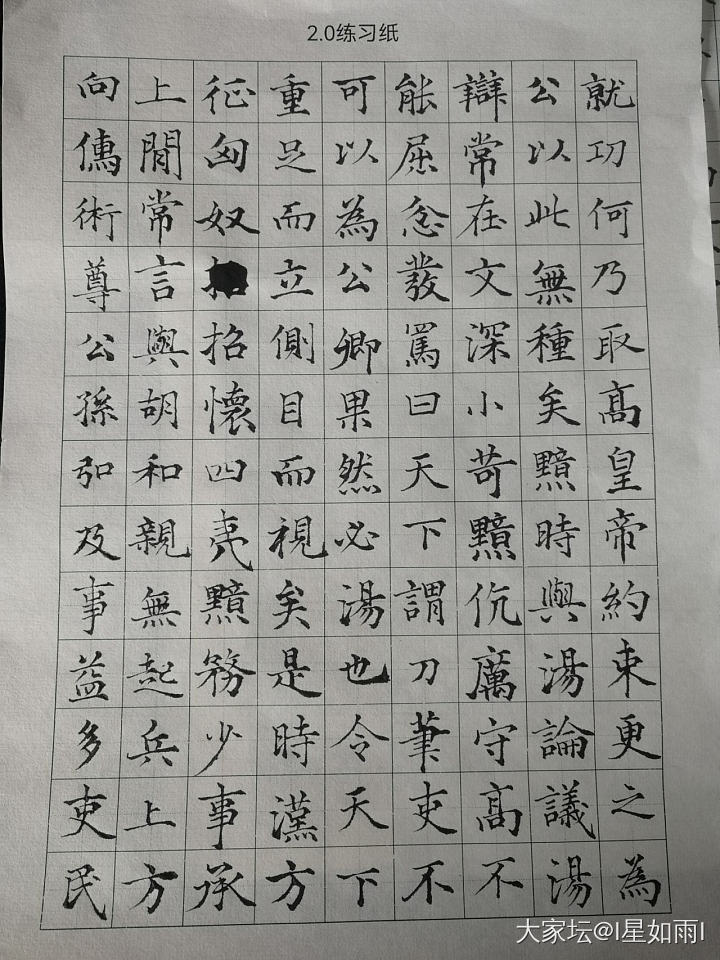 2.0练习纸
就功何乃取髙皇帝約束更之為
公以此無種矣黯時與湯論議湯
辯常在文深小苛黯伉厲守髙不
能屈忿發罵曰天下謂刀筆吏不
可以為公卿果然必湯也令天下
重足而立側目而視矣是時漢方
征匈奴招懷四夷黯務少事承
上閒常言與胡和親無起兵上方
向儒術尊公孫弘及事益多吏民
大家坛@l星如雨l